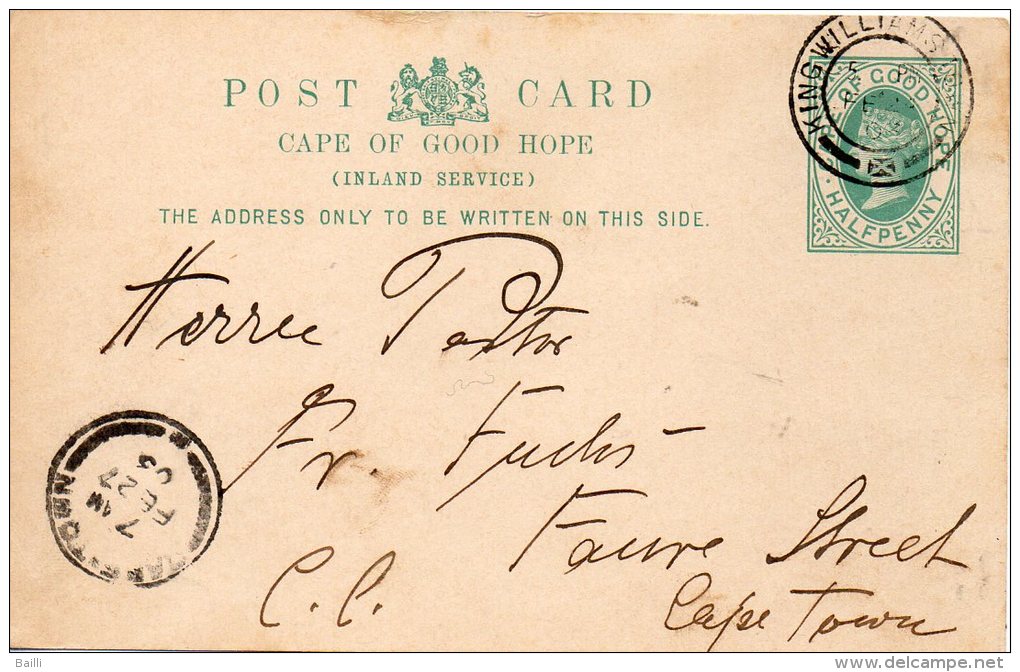 POST CARD
CAPE OF GOOD HOPE
(INLAND SERVICE)
THE ADDRESS ONLY TO BE WRITTEN ON THIS SIDE.
KINGWILLIAMS
OF GOOD HOPE
HALFPENNY
Herrn Pastor
Fr. Fuchs
Faure Street
C.C. Cape Town
CAPE TOWN
7 AM
FE 27
03
Baili
delcampe.net